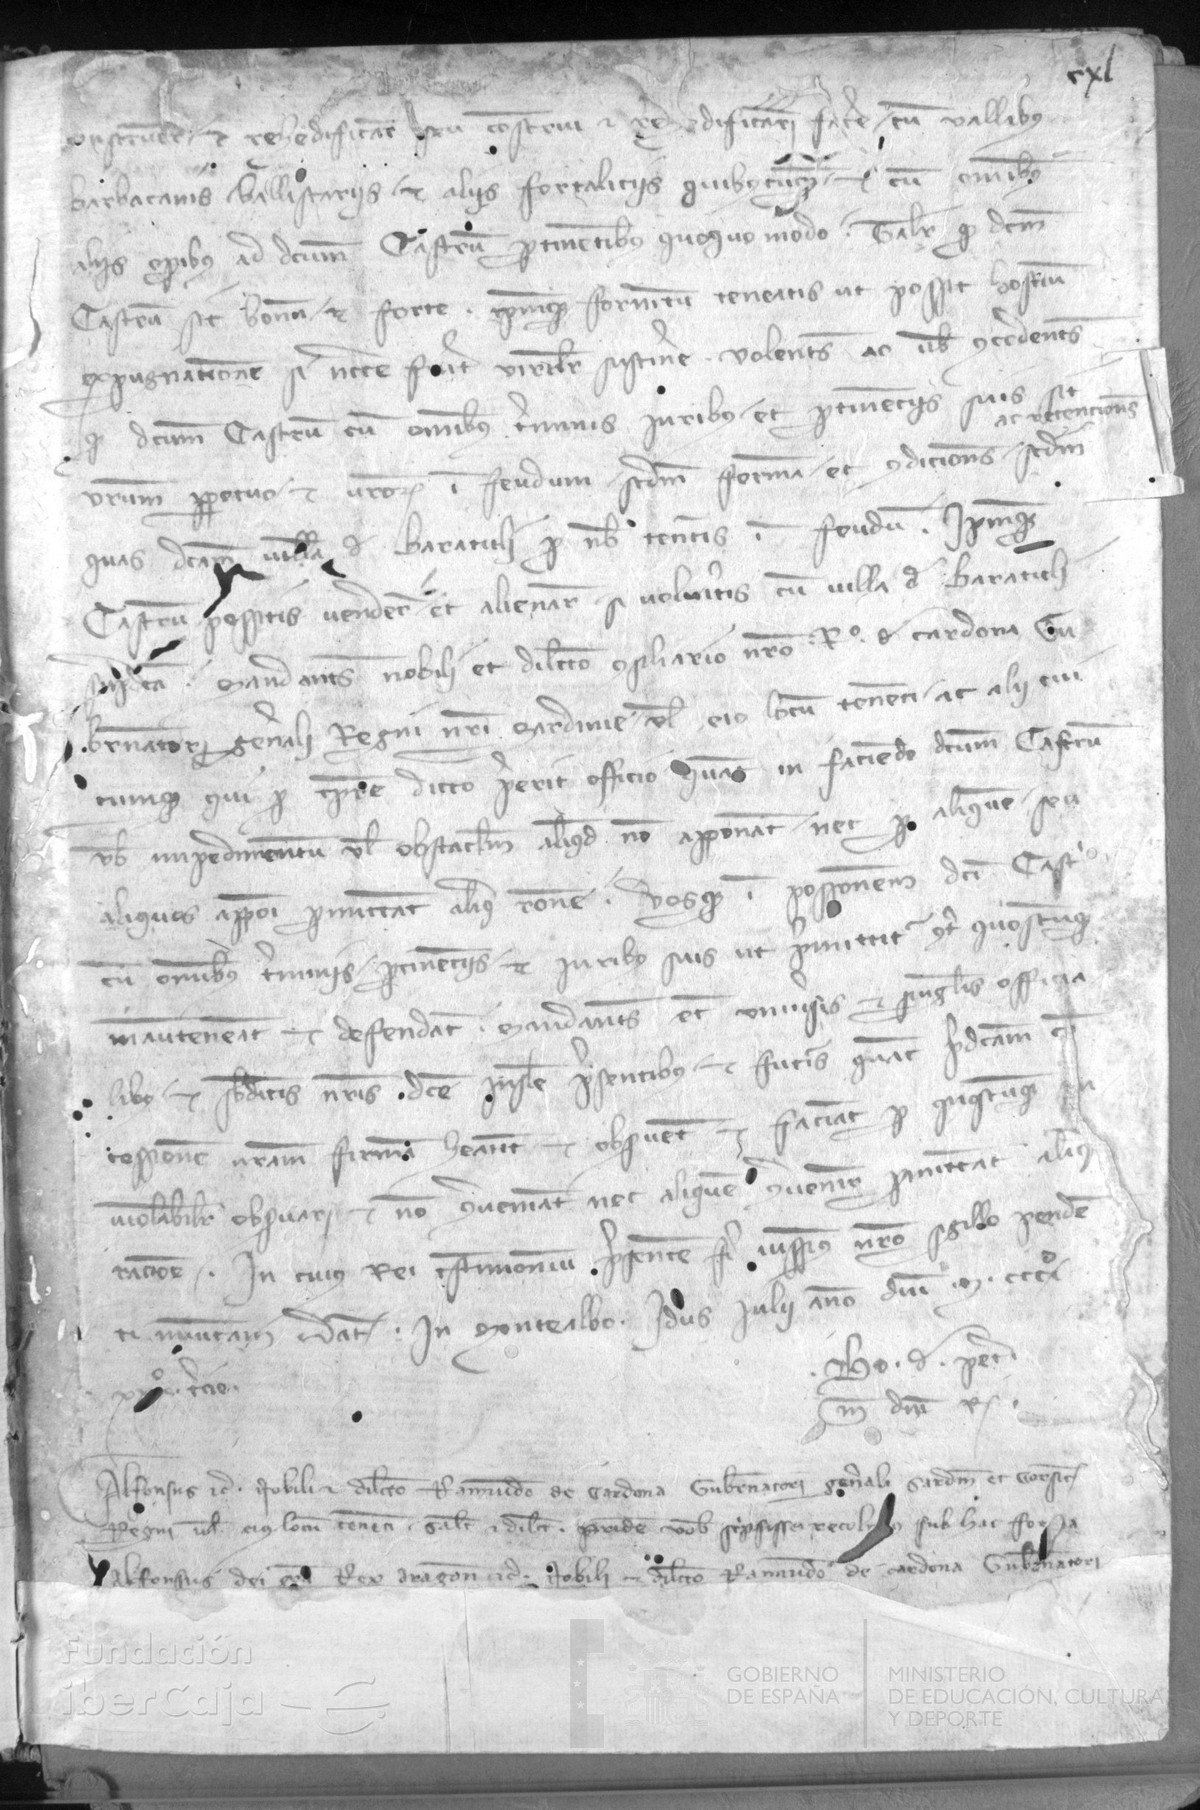 cxl
construere et rehedificare seu construi et rehedificari facere cum vallibus
barbacanis ballistariis et aliis fortaliciis quibuscumque et cum omnibus
aliis operibus ad dictum Castrum pertinentibus quoquo modo. Taliter quod dictum
Castrum sit bonum et forte. ipsumque fornitum teneatis ut possit hostium
expugnationem si necesse fuerit viriliter sustinere. volentes ac vobis concedentes
quod dictum Castrum cum omnibus terminis iuribus et pertinenciis suis sit
vestrum perpetuo et vestrorum in feudum secundum formam et condiciones ac retenciones secundum
quas dictam villam de Baratuli pro nobis tenetis in feudum. Ipsumque
Castrum possitis vendere et alienare si volueritis cum villa de Baratuli
supradicta. Mandantes nobili et dilecto consiliario nostro Rº. de Cardona Gu
bernatori generali Regni nostri Sardinie vel eius locum tenenti ac alii cui
cumque qui pro tempore dicto preerit officio quatenus in faciendo dictum Castrum
vobis impedimentum vel obstaculum aliquod non apponant nec per aliquem seu
aliquos apponi permittant aliqua ratione. Vosque in possessionem dicti Castri
cum omnibus terminis pertinenciis et iuribus suis ut permittitur contra quoscumque
manuteneat et defendat. Mandantes etiam universis et singulis officia
libus et subditis nostris dicte Insule presentibus et futuris quatenus predictam con
cessionem nostram firmam habeant et observent et faciant per quoscumque in
violabiliter observari et non conveniant nec aliquem convenire permittant aliqua
racione. In cuius Rei testimonium presentem fieri iussimus nostro sigillo penden
ti munitam. Dat. In Montealbo. Idus Julii anno domini Mº. cccº
xxxº. tercio.
Bo. de. pert.
m domini R.
Alfonsus etc. Nobili et dilecto Raimundo de Cardona Gubernatori generali Sardinie et Corsice
Regni vel eius locum tenenti salutem et dilectionem. pridem vobis scripsisse recolimus sub hac forma
Alfonsus dei gracia Rex Aragonum etc. Nobili et dilecto Raimundo de Cardona Gubernatori
Fundación
iberCaja
GOBIERNO
DE ESPAÑA
MINISTERIO
DE EDUCACIÓN, CULTURA
Y DEPORTE